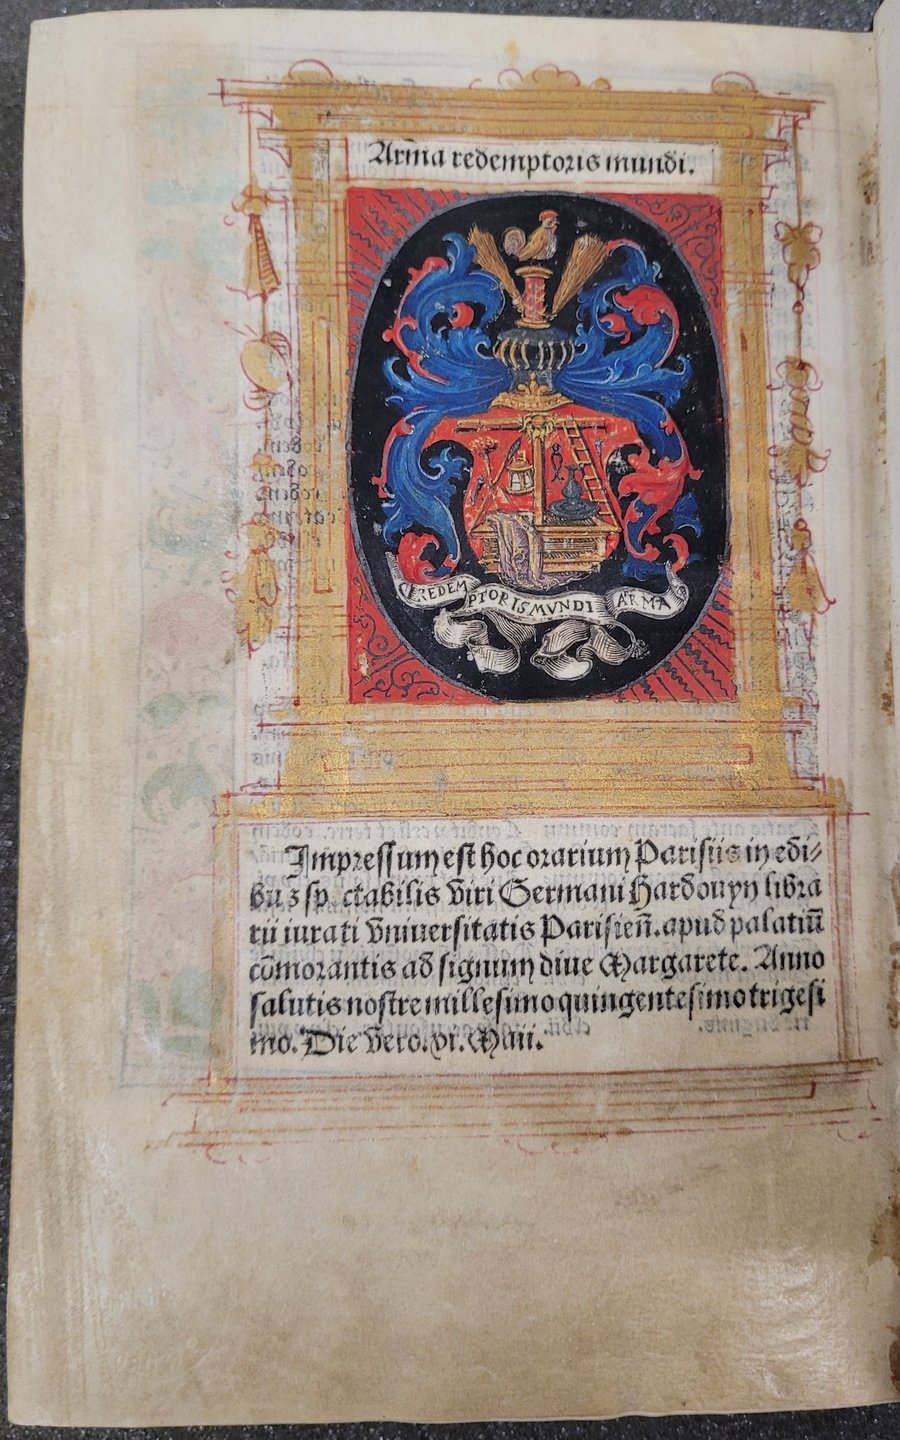 Arm̃a redemptoris mundi.
REDEM
PTORIS MVNDI
ARMA
Impressum est hoc orarium Parisiis in edi⸗
buꝫ sp ctabilis viri Germani Hardouyn libra
rii iurati vniuersitatis Parisieñ. apud palatiũ
cõmorantis ad signum diue Margarete. Anno
salutis nostre millesimo quingentesimo trigesi
mo. Die vero. vi. Maii.